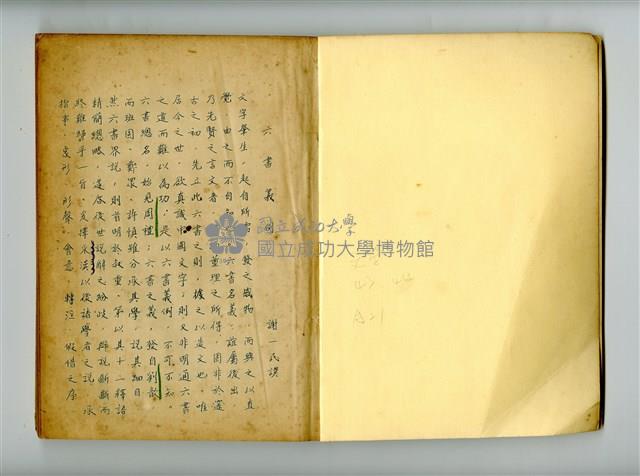 六書義例
謝一民識
文字孳生，起自所 發之感物，而興之以直
覺，由之而不自知 六書名義，誼屬後出，
乃先賢之言文者， 董理之所得，固非於邃
古之初，先立此六書之則，據之以造文也。唯
居今之世，欲真識中國文字，則又非明通六書
之道而難以為功，是以六書義例，不可不知。
六書總名，始見周禮；六書之義，發自劉歆
而班固、鄭眾、許慎雖分承其學，說其細目
然六書界說，則首明於叔重，第以其十二釋語
精簡總略，遂啟後世說解之紛岐，辯說斷斷而
終難歸乎一旨，爰擇采漢以後諸學者之說，承
指事、象形、形聲、會意、轉注、假借之序
國立成功大學
國立成功大學博物館